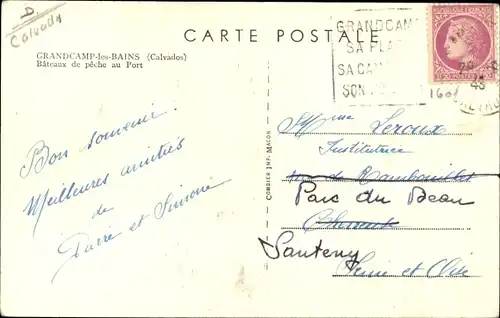 D
Calvados
CARTE POSTALE
GRANDCAMP-les-BAINS (Calvados)
Bâteaux de pêche au Port
GRANDCAMP
SA PLA
SA CA
SON
45
1601
Bon souvenir.
Meilleures amitiés
de
Pierre et Simone
COMBIER IMP. MACON
Mme Leroux
Institutrice
rue de Rambouillet
Parc du Beau
Santeny
Seine et Oise